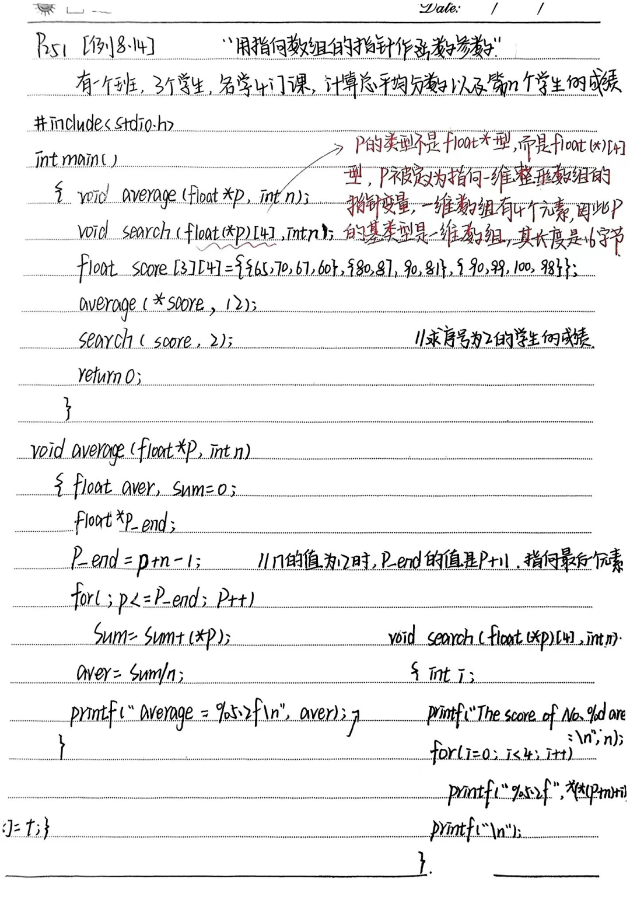 Date: / /
P251 [例8.14] "用指向数组的指针作函数参数"
有一个班, 3个学生, 各学4门课, 计算总平均分数以及第n个学生的成绩
#include<stdio.h>
int main()
P的类型不是float*型,而是float(*)[4]
型, P被定义为指向一维整型数组的
指针变量, 一维数组有4个元素,因此P
的基类型是一维数组, 其长度是16字节
{ void average(float*p, int n);
void search(float(*p)[4], int n);
float score[3][4]={{65,70,67,60},{80,87,90,81},{90,99,100,98}};
average(*score, 12);
search(score, 2); //求序号为2的学生的成绩
return 0;
}
void average(float*p, int n)
{ float aver, sum=0;
float*P_end;
P_end = p+n-1; //n的值为12时, P_end的值是P+11, 指向最后个元素
for(; p<=P_end; P++)
sum=sum+(*p);
aver=sum/n;
printf("average = %5.2f\n", aver);
}
void search(float(*p)[4], int n)
{ int i;
printf("The score of No.%d are
:\n", n);
for(i=0; i<4; i++)
printf("%5.2f", *(*(p+n)+i)
printf("\n");
}.
:]=t;}